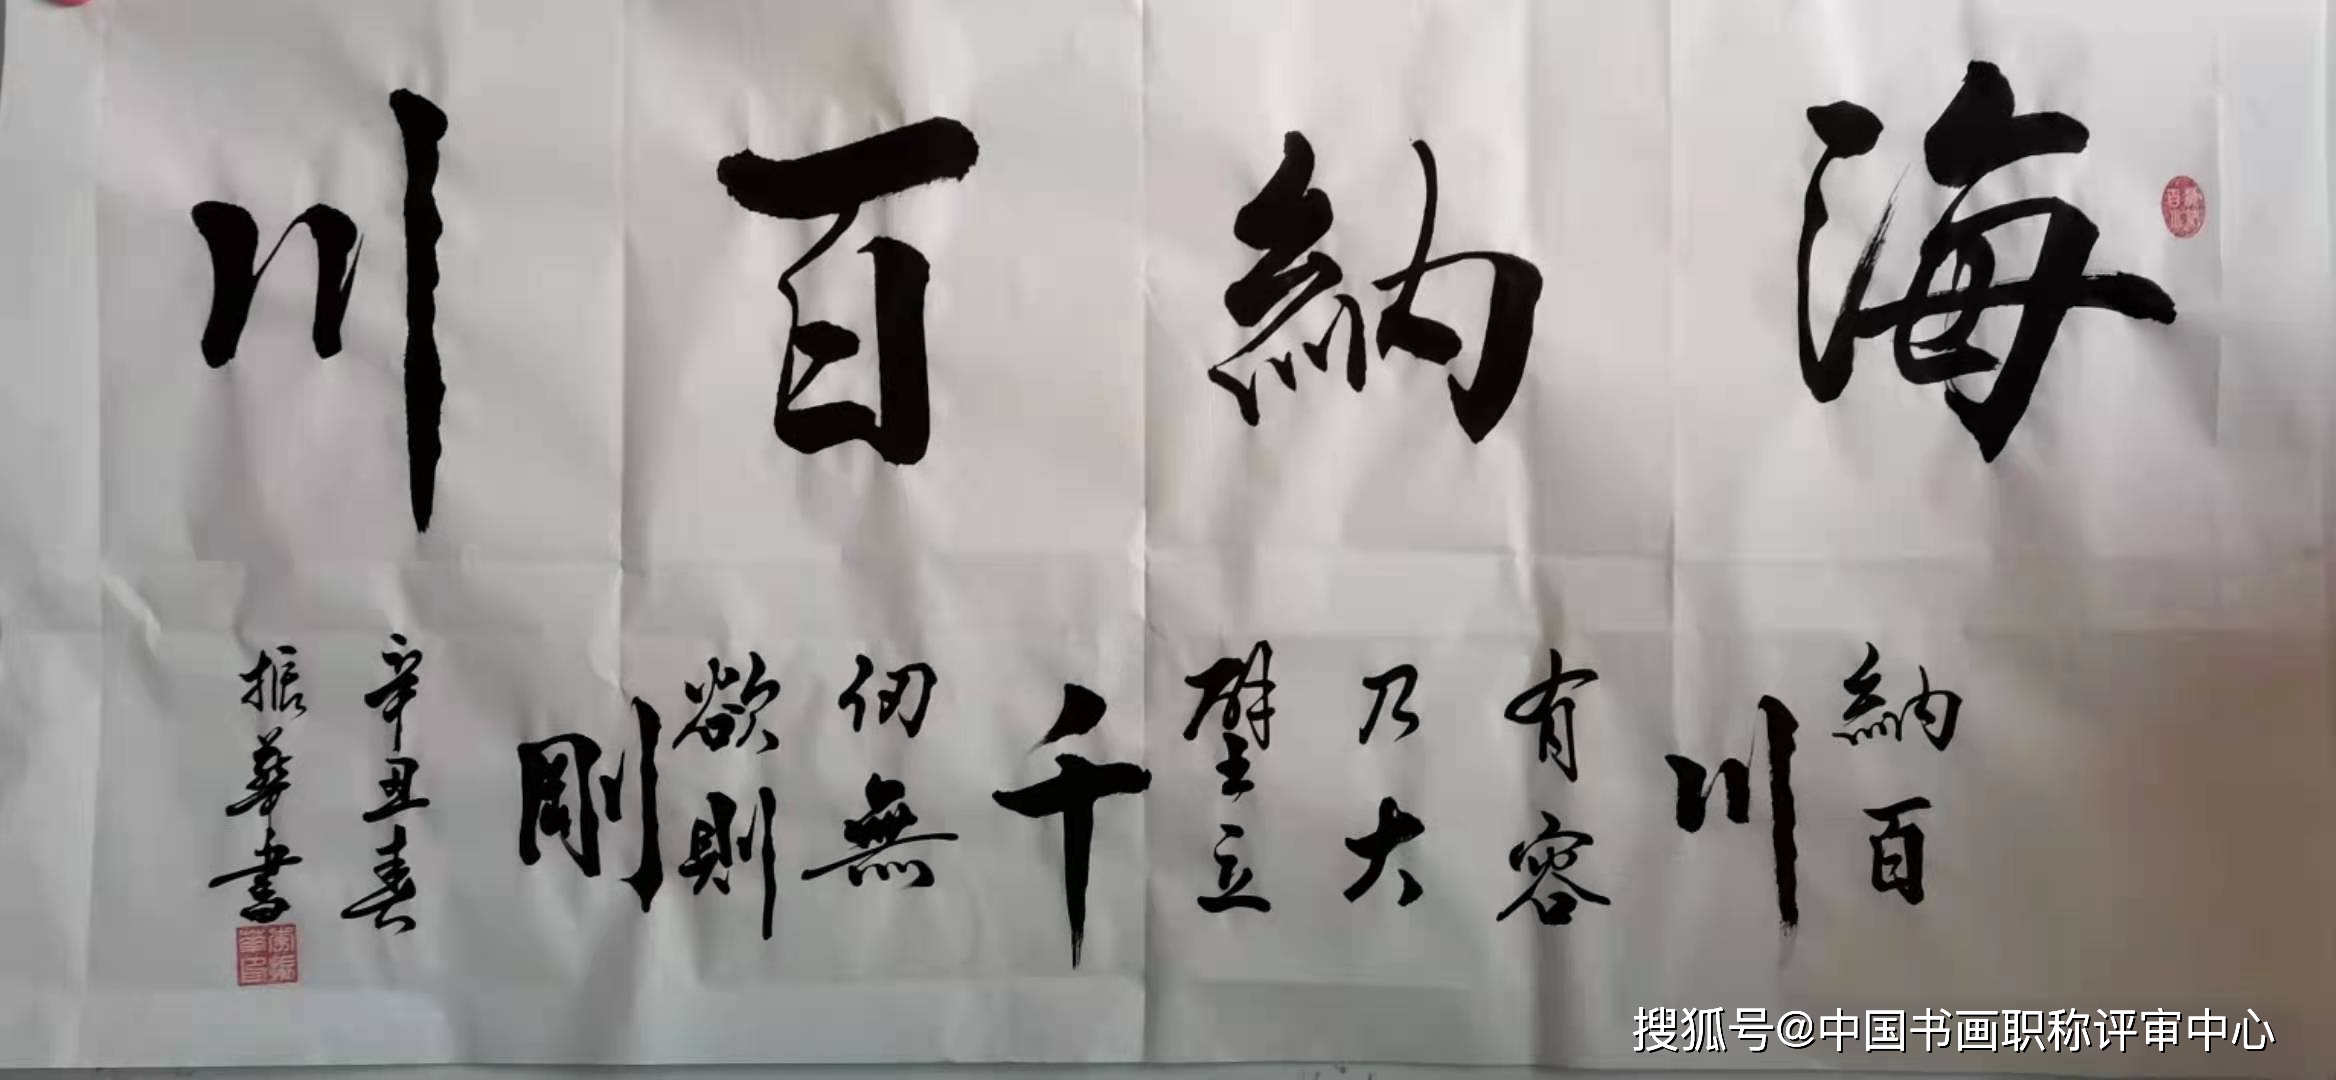 海納百川
納百
川
有容
乃大
壁立
千
仞無
欲則
剛
辛丑春
振華書
搜狐号@中国书画职称评审中心